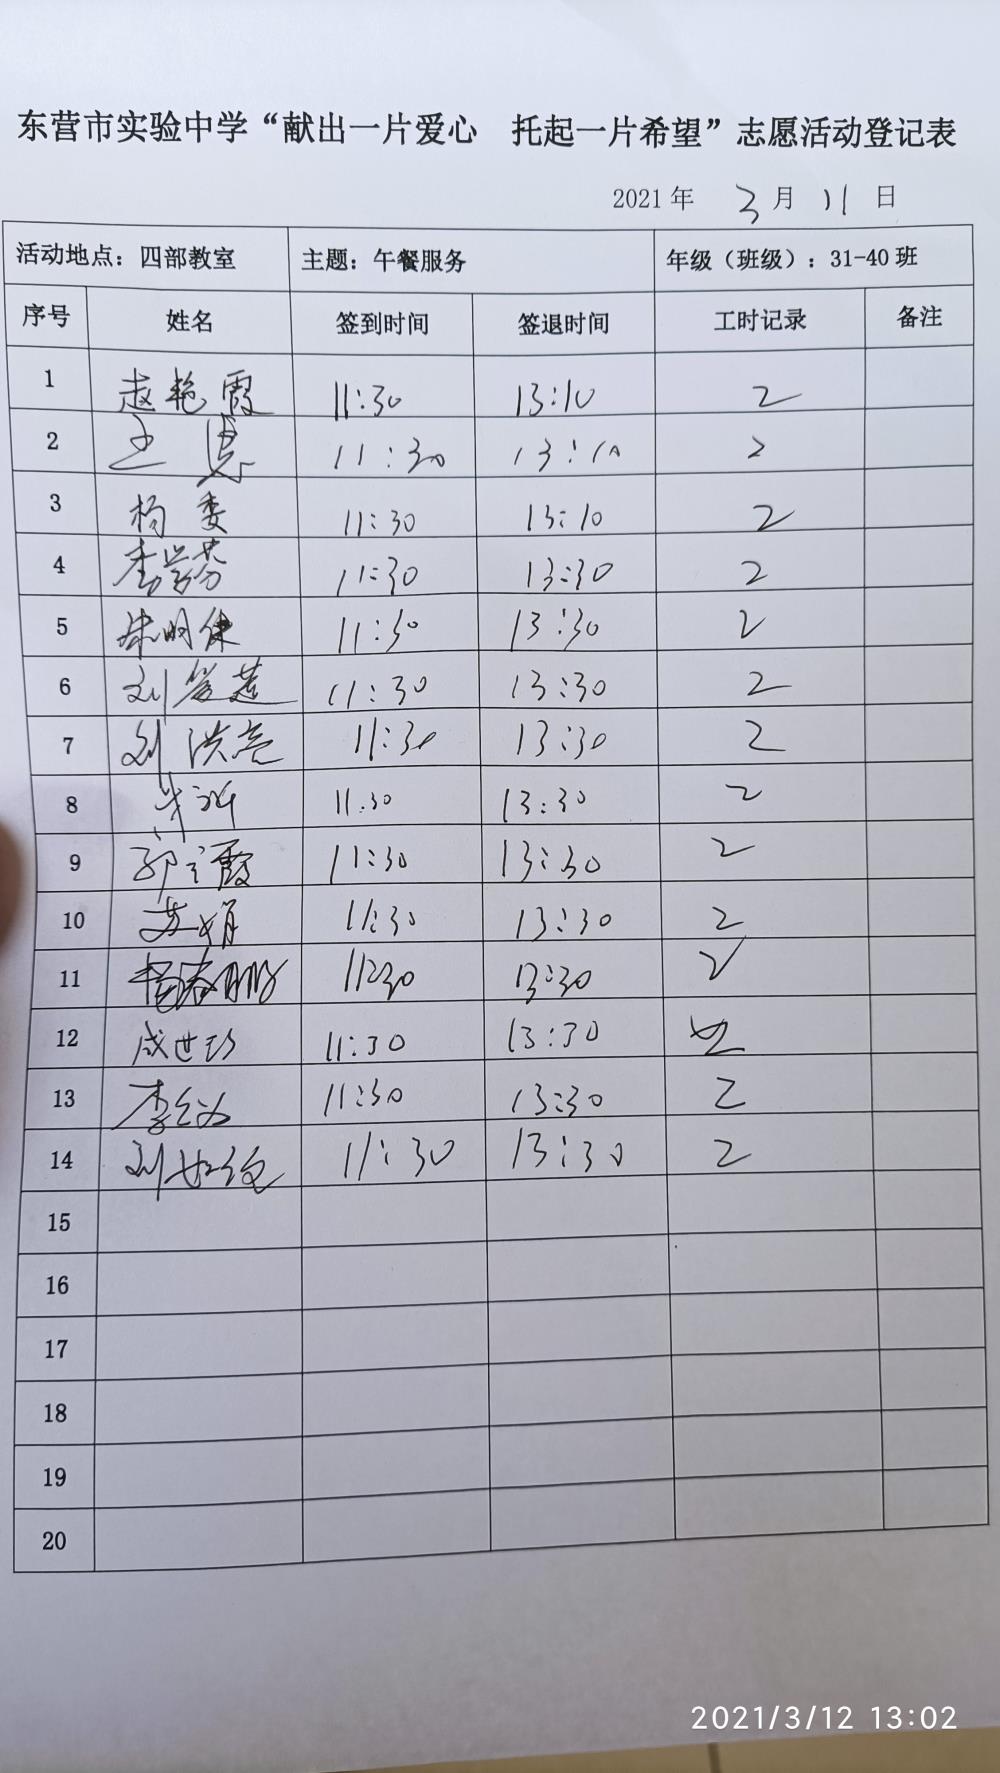 东营市实验中学“献出一片爱心 托起一片希望”志愿活动登记表
2021 年 3 月 11 日
活动地点：四部教室 主题：午餐服务 年级（班级）：31-40 班
序号 姓名 签到时间 签退时间 工时记录 备注
1 赵艳霞 11:30 13:10 2
2 王 11:30 13:10 2
3 杨委 11:30 13:10 2
4 11:30 13:30 2
5 11:30 13:30 2
6 刘爱莲 11:30 13:30 2
7 刘洪亮 11:30 13:30 2
8 11:30 13:30 2
9 郭霞 11:30 13:30 2
10 苏娟 11:30 13:30 2
11 11:30 13:30 2
12 成世珍 11:30 13:30 2
13 李 11:30 13:30 2
14 刘 11:30 13:30 2
15
16
17
18
19
20
2021/3/12 13:02